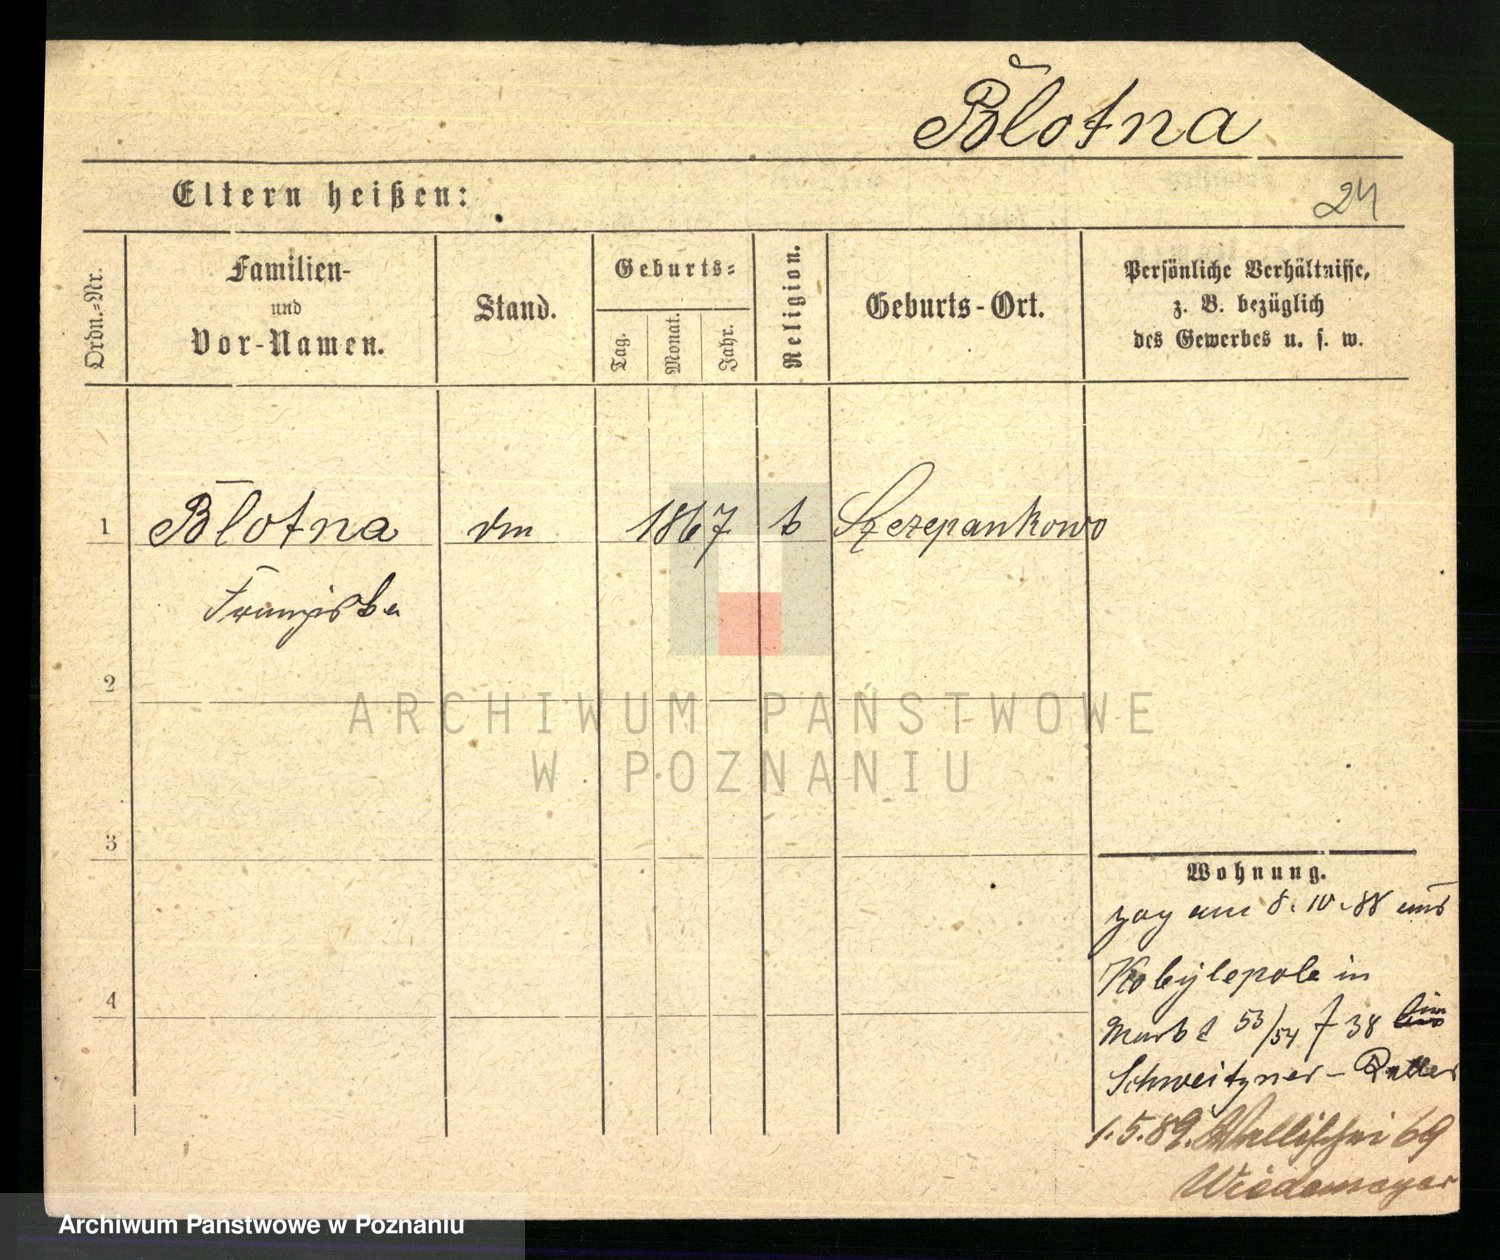 Blotna
Eltern heißen:
24
Ordn.-Nr.
Familien-
und
Vor-Namen.
Stand.
Geburts-
Tag.
Monat.
Jahr.
Religion.
Geburts-Ort.
Persönliche Verhältnisse,
z. B. bezüglich
des Gewerbes u. s. w.
1 Blotna 1867 Szczepankowo
Franziska
2
3
4
ARCHIWUM PAŃSTWOWE
W POZNANIU
Wohnung.
zog am 8. 10. 88 aus
Kobylepole in
Markt 53/54 f 38 bim
Schweitzner-
1.5.89. Wallischei 69
Wiedemeyer
Archiwum Państwowe w Poznaniu